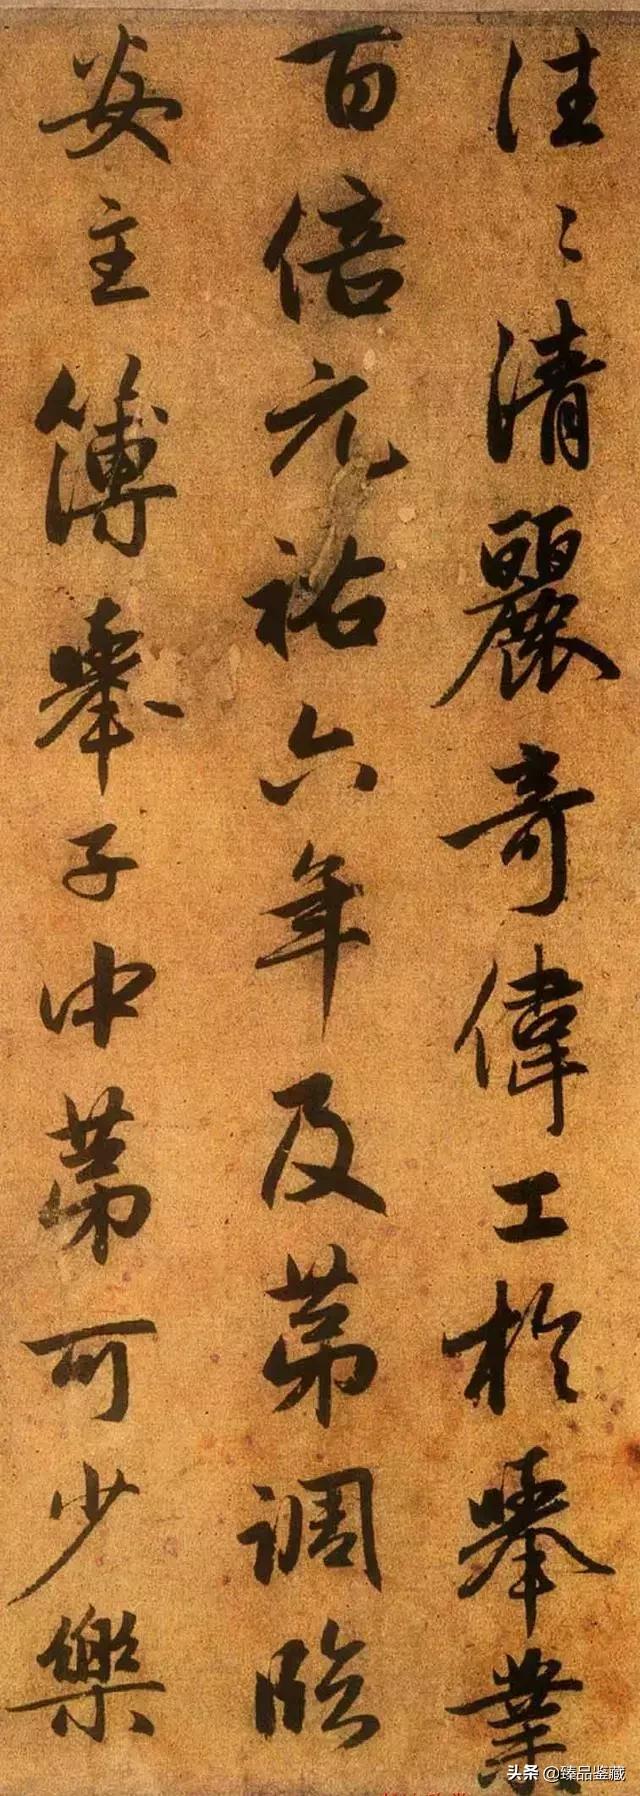 往〻清麗奇偉工於舉業
百倍元祐六年及第調臨
安主簿舉子中第可少樂
头条 @臻品鉴藏